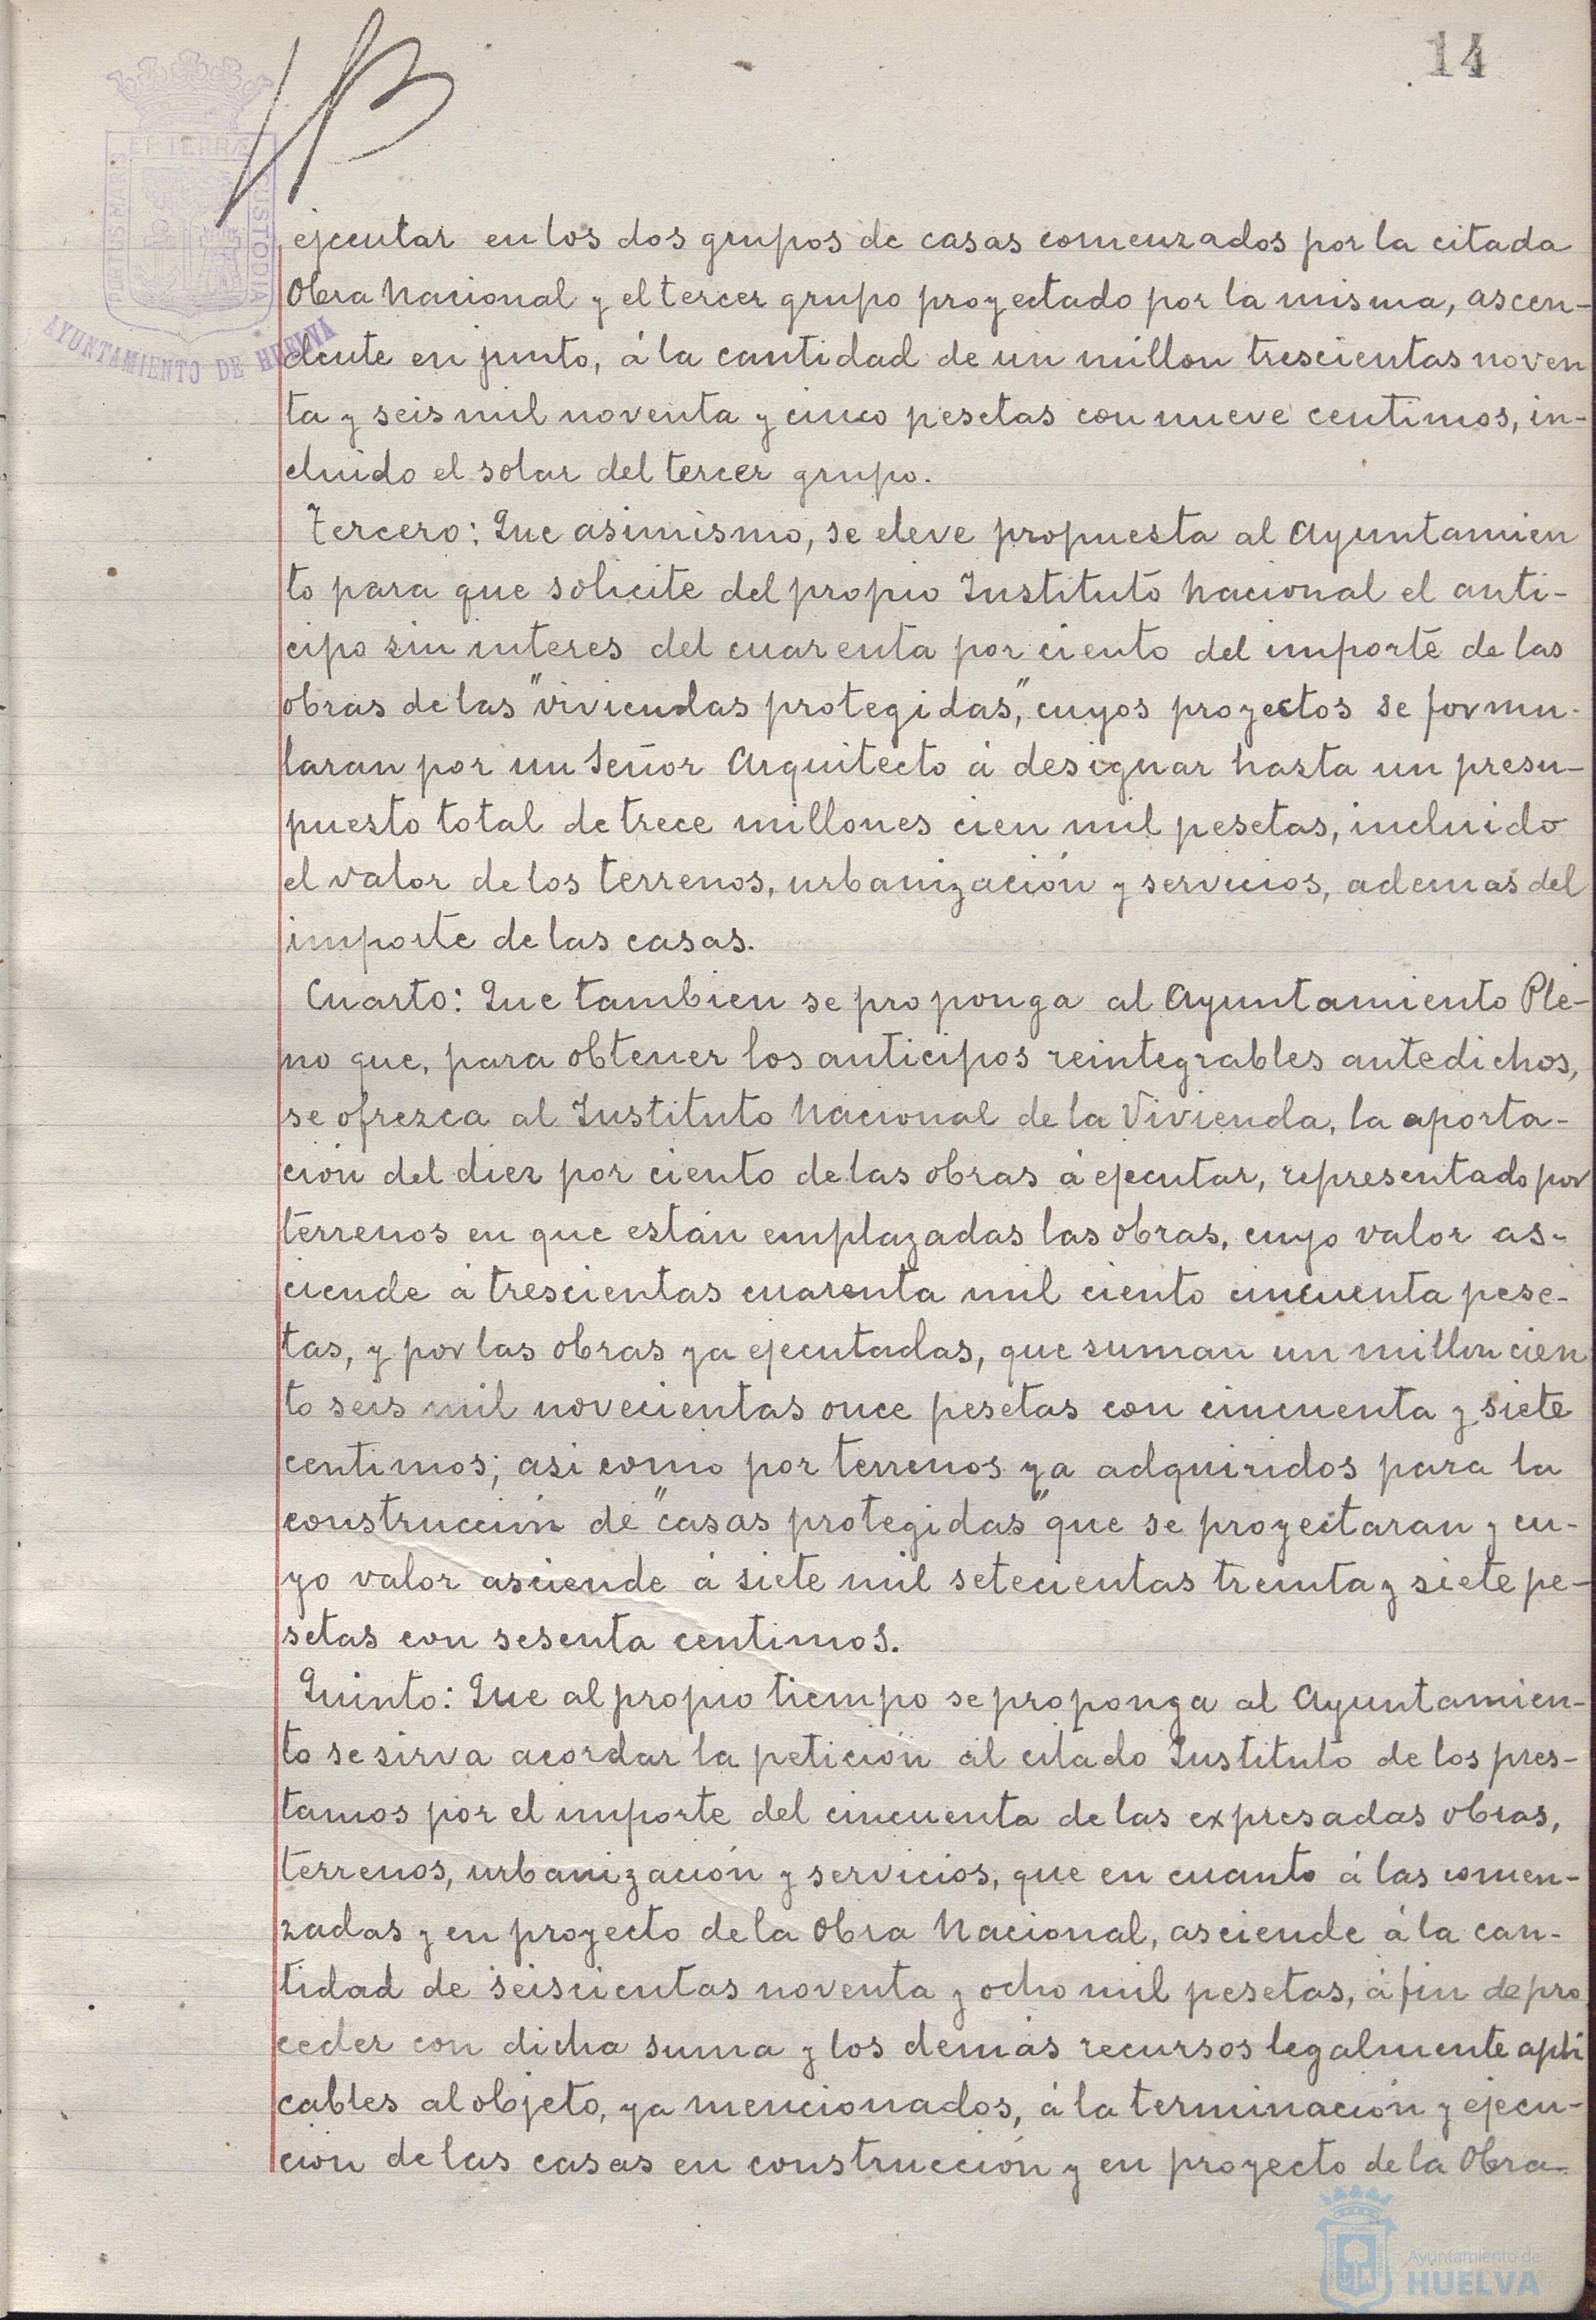 14
ET TERRÆ
CUSTODIA
AYUNTAMIENTO DE HUELVA
ejecutar en los dos grupos de casas comenzados por la citada
Obra Nacional y el tercer grupo proyectado por la misma, ascen-
dente en junto, á la cantidad de un millon trescientas noven
ta y seis mil noventa y cinco pesetas con nueve centimos, in-
cluido el solar del tercer grupo.
Tercero: Que asimismo, se eleve propuesta al Ayuntamien
to para que solicite del propio Instituto Nacional el anti-
cipo sin interes del cuarenta por ciento del importe de las
obras de las "viviendas protegidas", cuyos proyectos se formu-
laran por un Señor Arquitecto á designar hasta un presu-
puesto total de trece millones cien mil pesetas, incluido
el valor de los terrenos, urbanización y servicios, ademas del
importe de las casas.
Cuarto: Que tambien se proponga al Ayuntamiento Ple-
no que, para obtener los anticipos reintegrables antedichos,
se ofrezca al Instituto Nacional de la Vivienda, la aporta-
ción del diez por ciento de las obras á ejecutar, representado por
terrenos en que están emplazadas las obras, cuyo valor as-
ciende á trescientas cuarenta mil ciento cincuenta pese-
tas, y por las obras ya ejecutadas, que suman un millon cien
to seis mil novecientas once pesetas con cincuenta y siete
centimos; asi como por terrenos ya adquiridos para la
construcción de "casas protegidas" que se proyectaran y cu-
yo valor asciende á siete mil setecientas treinta y siete pe-
setas con sesenta centimos.
Quinto: Que al propio tiempo se proponga al Ayuntamien-
to se sirva acordar la petición al citado Instituto de los pres-
tamos por el importe del cincuenta de las expresadas obras,
terrenos, urbanización y servicios, que en cuanto á las comen-
zadas y en proyecto de la Obra Nacional, asciende á la can-
tidad de seiscientas noventa y ocho mil pesetas, á fin de pro
ceder con dicha suma y los demás recursos legalmente apli
cables al objeto, ya mencionados, á la terminación y ejecu-
ción de las casas en construcción y en proyecto de la Obra
Ayuntamiento de
HUELVA